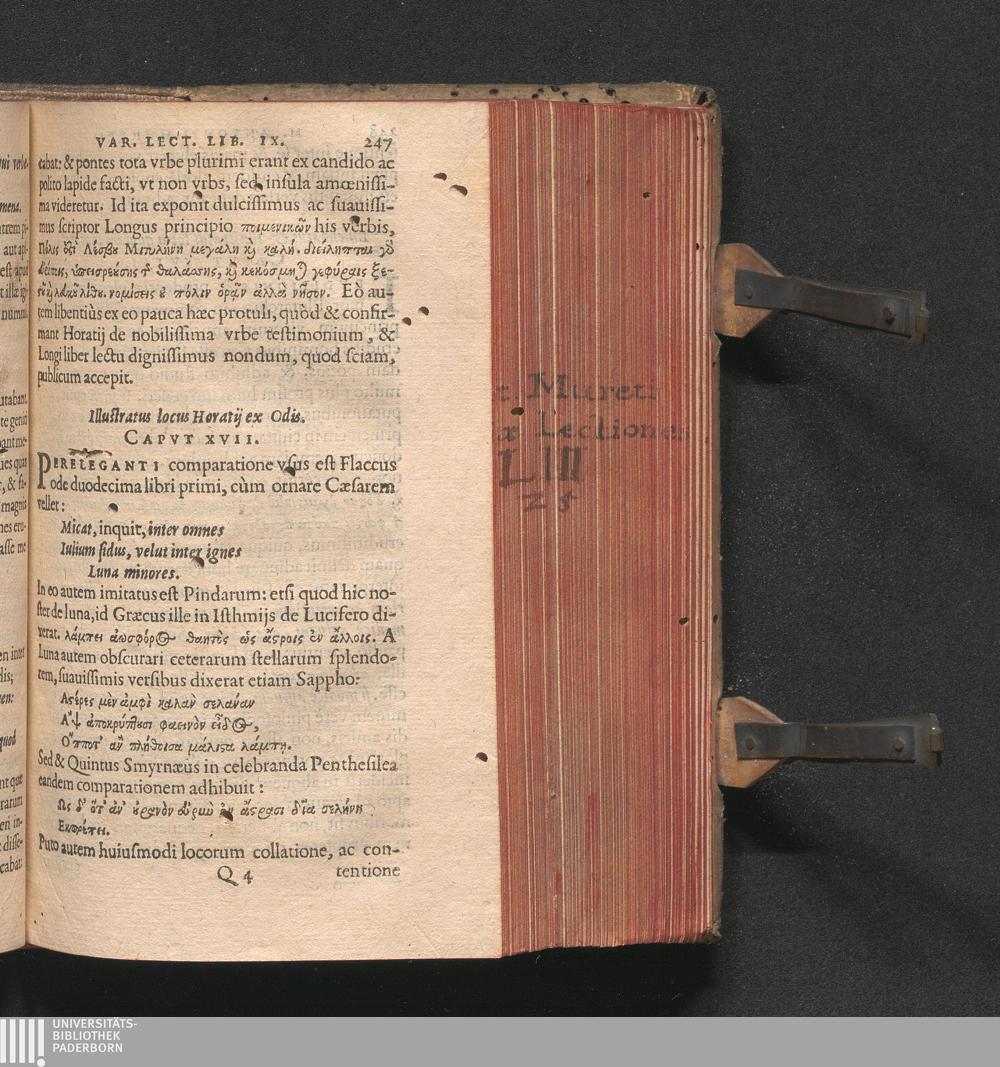 VAR. LECT. LIB. IX. 247
cabat: & pontes tota vrbe plurimi erant ex candido ac
polito lapide facti, vt non vrbs, sed insula amœnissi-
ma videretur. Id ita exponit dulcissimus ac suauissi-
mus scriptor Longus principio ποιμενικῶν his verbis,
Πόλις ἐστὶ Λέσβου Μιτυλήνη μεγάλη καὶ καλή. διείληπται γὸ
εὐρίποις, ὑπεισρεούσης τ͂ θαλάσσης, καὶ κεκόσμη) γεφύραις ξε-
λευκοῦ λίθου. νομίσεις ου πόλιν ὁρᾶν ἀλλὰ νῆσον. Eò au-
tem libentiùs ex eo pauca hæc protuli, quòd & confir-
mant Horatij de nobilissima vrbe testimonium, &
Longi liber lectu dignissimus nondum, quod sciam,
publicum accepit.
Illustratus locus Horatij ex Odis.
CAPVT XVII.
PERELEGANTI comparatione vsus est Flaccus
ode duodecima libri primi, cùm ornare Cæsarem
vellet:
Micat, inquit, inter omnes
Iulium sidus, velut inter ignes
Luna minores.
In eo autem imitatus est Pindarum: etsi quod hic no-
ster de luna, id Græcus ille in Isthmijs de Lucifero di-
xerat. λάμπει ἀωσφόρος θαητὸς ὡς ἄστροις ἐν ἄλλοις. A
Luna autem obscurari ceterarum stellarum splendo-
rem, suauissimis versibus dixerat etiam Sappho:
Αστέρες μὲν ἀμφὶ καλὰν σελάναν
Αἶψ ἀποκρύπτουσι φαεινὸν εἶδος,
Οππότ' ἂν πλήθοισα μάλιστα λάμπῃ.
Sed & Quintus Smyrnæus in celebranda Penthesilea
eandem comparationem adhibuit:
Ως δ' ὅτ' ἀν' οὐρανὸν εὐρὺν ἐν ἄστρασι δῖα σελήνη
Εκπρέπει.
Puto autem huiusmodi locorum collatione, ac con-
Q 4 tentione
t. Mureti
æ Lectiones
LIII
25
UNIVERSITÄTS-
BIBLIOTHEK
PADERBORN